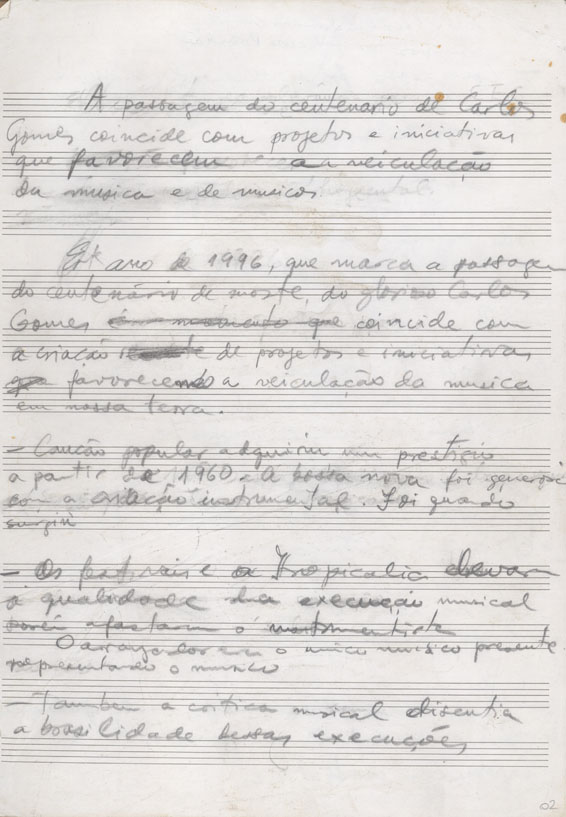 A passagem do centenario de Carlos
Gomes coincide com projetos e iniciativas
que favorecem a veiculação
da musica e de musicos
Este ano de 1996, que marca a passagem
do centenário de morte, do glorioso Carlos
Gomes é momento que coincide com
a criação de projetos e iniciativas
que favorecendo a veiculação da musica
em nossa terra.
- Canção popular adquiriu um prestigio
a partir de 1960. A bossa nova foi generosa
com a criação instrumental. Foi quando
surgiu
- Os festivais e a Tropicalia elevaram
a qualidade da execução musical
porém afastam o instrumentista
O arranjador era o unico musico presente
representando o musico
- Tambem a critica musical discutia
a possilidade dessas execuções
02